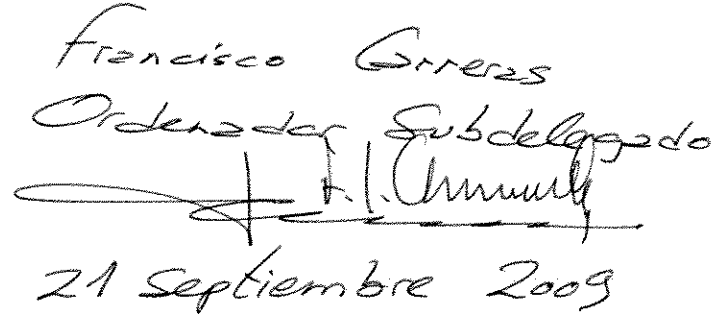 Francisco Carreras
Ordenador Subdelegado
21 Septiembre 2009